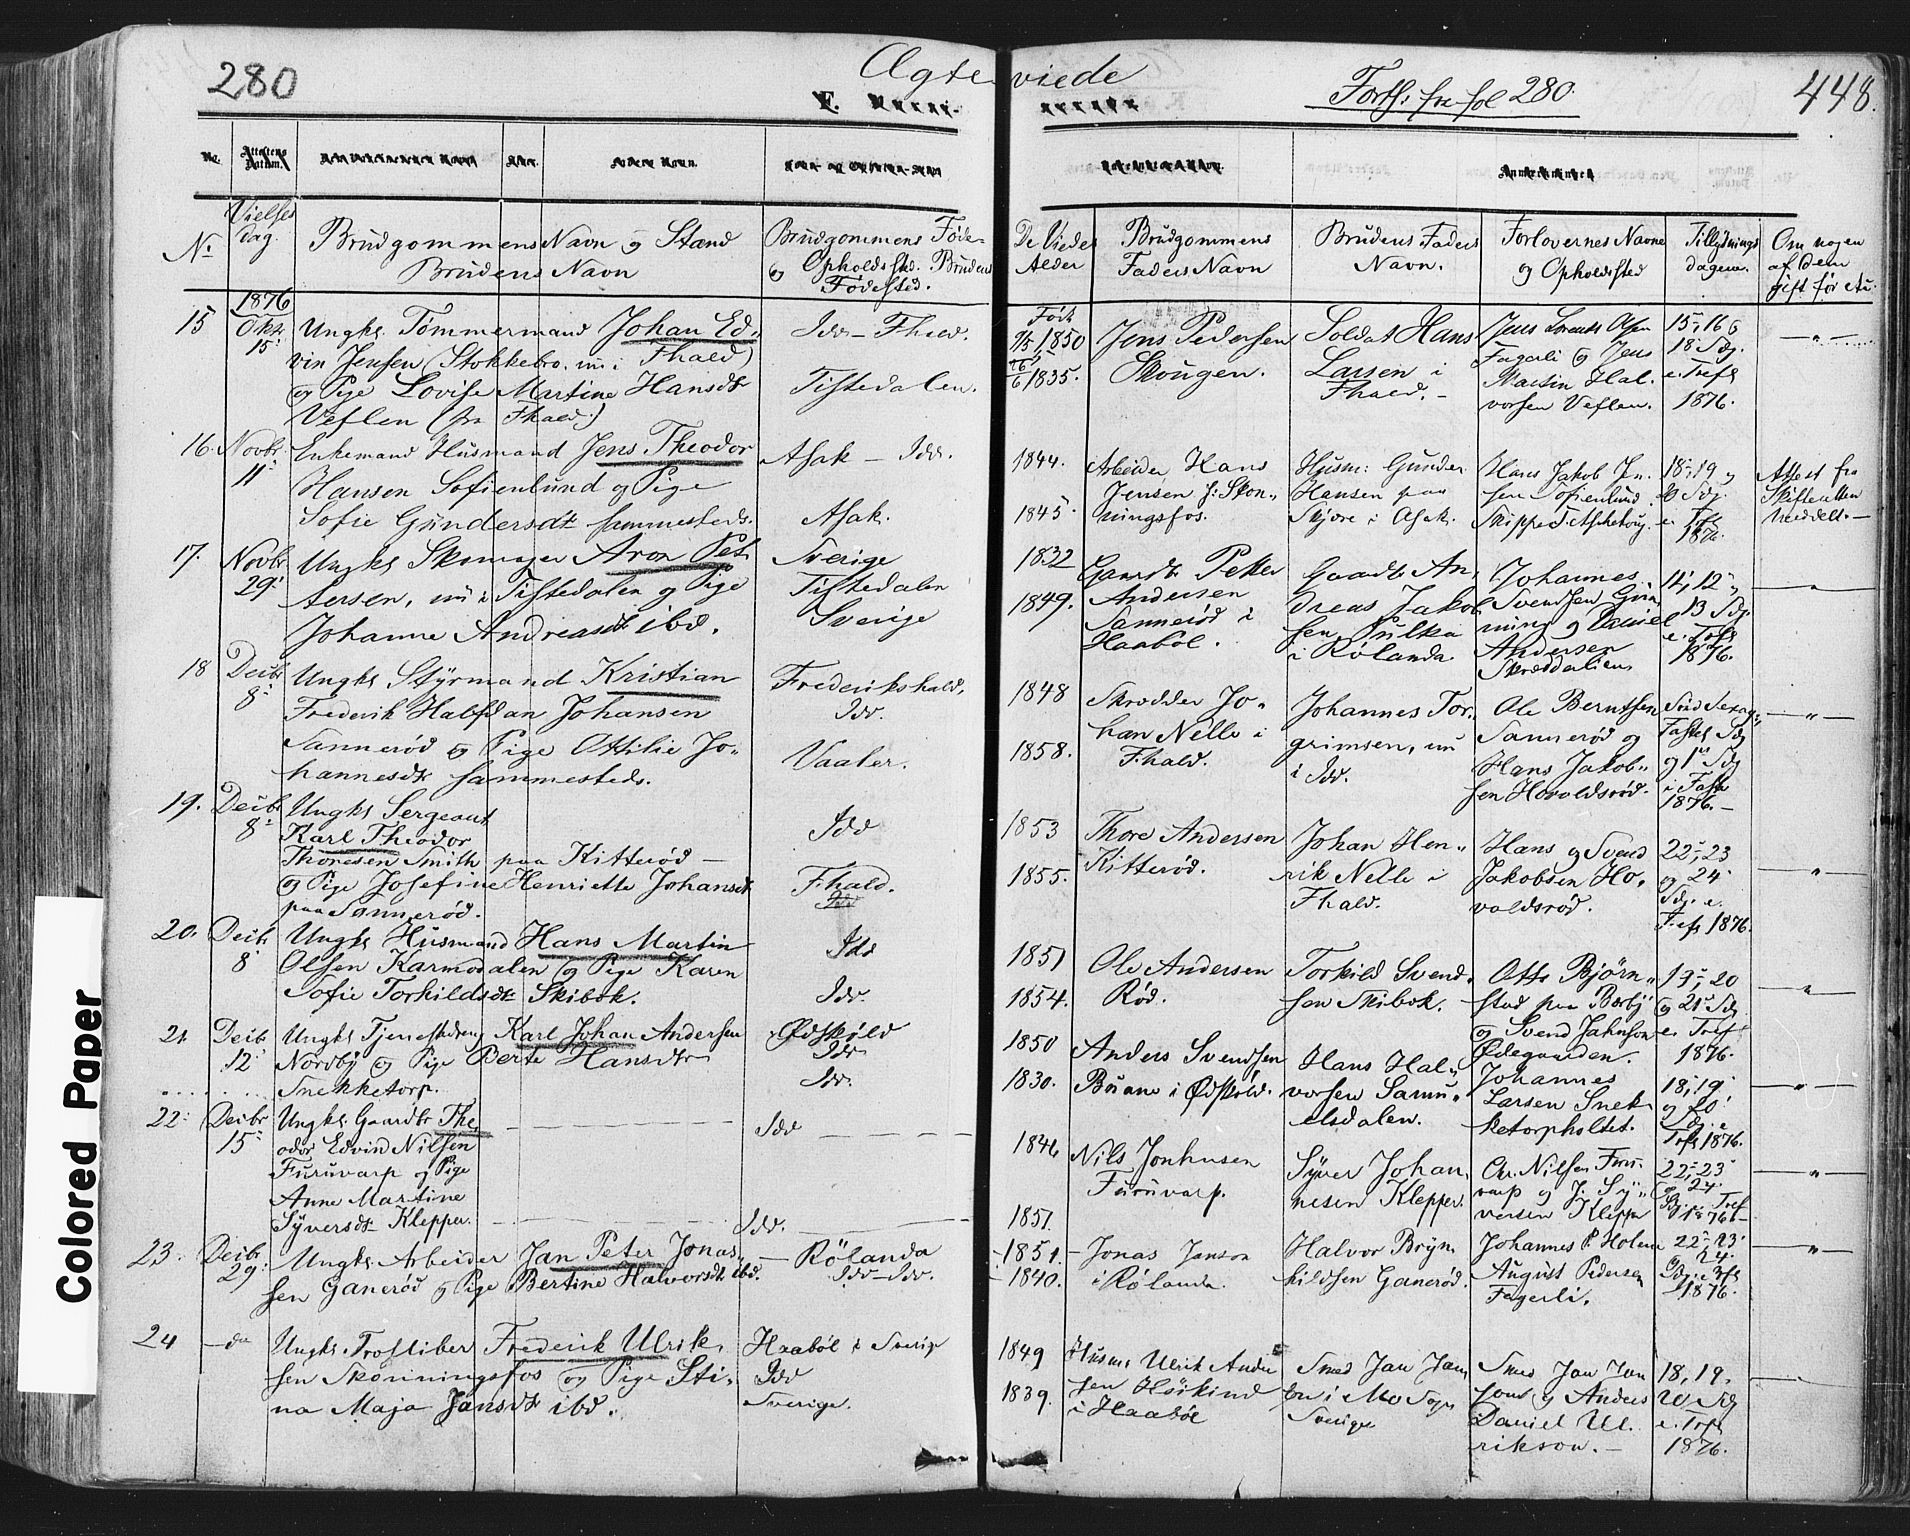 280
Ægteviede
Forts. fra fol 280.
448.
No
Vielses dag.
Brudgommens Navn og Stand
Brudens Navn
Brudgommens Føde-
og Opholdssted. Brudens
Fødested.
De Viedes
Alder
Brudgommens
Faders Navn
Brudens Faders
Navn.
Forlovernes Navne
og Opholdsted
Tillysnings
dagene.
Om nogen
af dem
gift før etc.
1876
15 Okt. 15.
Ungk. Tømmermand Johan Ed-
vin Jensen (Stokkebro. nu i Fhald)
og Pige Lovise Martine Hansdt
Veflen (fra Fhald.)
Idd – Fhald.
Tistedalen.
Født
9/5 1850
26/6 1835.
Jens Pedersen
Skougen.
Soldat Hans
Larsen i
Fhald. –
Jens Lorents Olsen
Fagerli og Jens
Martin Hal-
vorsen Veflen.
15, 16 &
18. Sdg.
e. Tref
1876.
16. Novbr. 11.
Enkemand Husmand Jens Theodor
Hansen Sofienlund og Pige
Sofie Gundersdt sammesteds.
Asak – Idd.
Asak.
1844.
1845.
Arbeider Hans
Jensen i Skon-
ningsfos.
Husm. Gunder
Hansen paa
Skjøre i Asak.
Hans Jakob Jen-
sen Sofienlund
18, 19 og
20 Sdg.
e. Tref
1876.
Attest fra
Skifteretten
meddelt. –
17. Novbr 29.
Ungk. Skomager Aron Pet-
tersen, nu i Tistedalen og Pige
Johanne Andreasdt ibd.
Sverige
Tistedalen
Sverige
1832
1849.
Gaardb. Petter
Andersen
Sannerød i
Haabøl.
Gaardb. An-
dreas Jakob-
sen Pulka
i Rølanda
Johannes
Svendsen Grim-
ning og Daniel
Andersen
Skrædderlien
11, 12 og
13 Sdg.
e. Tref
1876.
18 Decbr 8.
Ungk. Styrmand Kristian
Frederik Halfdan Johansen
Sannerød og Pige Ottilie Jo-
hannesdt sammesteds.
Frederikshald,
Idd.
Vaaler.
1848
1858.
Skrædder Jo-
han Nelle i
Fhald.
Johannes Tor-
grimsen, nu
i Idd.
Ole Berntsen
Sannerød og
Hans Jakob-
sen Hovoldsrød.
Sønd Sexag.
Fastel Sdg
og 1. Sdg
i Faste
1876. –
19. Decbr 8.
Ungk. Sergeant
Karl Theodor
Thoresen Smith paa Kitterød –
og Pige Josefine Henriette Johansdt
paa Sannerød.
Idd
Fhald.
1853
1855.
Thore Andersen
Kitterød.
Johan Hen-
rik Nelle i
Fhald.
Hans og Svend
Jakobsen Ho-
voldsrød.
22, 23
og 24.
Sdg. e.
Tref 1876.
20. Decbr 8
Ungk Husmand Hans Martin
Olsen Karmodalen og Pige Karen
Sofie Torkildsdt Skibøk.
Idd
Idd.
1851
1854.
Ole Andersen
Rød.
Torkild Svend-
sen Skibøk.
Otto Bjørn-
stad paa Berby
og Svend Jahnson
Ødegaarden.
19, 20
og 21. Sdg
e. Tref
1876.
21 Decbr 12
Ungk Tjenestedreng Karl Johan Andersen
Nordby og Pige Berte Hansdt
Snekketorp.
Ødskøld
Idd
Idd.
1850
1830.
Anders Svendsen
Buane i Ødskøld.
Hans Hal-
vorsen Samu-
elsdalen.
Johannes
Larsen Snek-
ketorpholtet.
18, 19
og 20
Sdg. e.
Tref 1876.
22. Decbr 15.
Ungk. Gaardbr The-
odor Edvin Nilsen
Furuvarp og Pige
Anne Martine
Syversdt Klepper.
Idd
Idd.
1846
1851.
Nils Jonhusen
Furuvarp.
Syver Johan-
nesen Klepper.
Chr. Nilsen Furu-
varp og J. Sy-
versen Klepper
22, 23
og 24.
Sdg. e. Tref
1876 –
23. Decbr 29.
Ungk. Arbeider Jan Peter Jonas-
sen Ganerød og Pige Bertine Halvorsdt ibd.
– Rølanda
Idd – Idd.
– 1851. –
– 1840.
Jonas Janson
i Rølanda.
Halvor Bryn-
hildsen Ganerød.
Johannes P. Holen
August Pedersen
Fagerli.
22, 23
& 24.
Sdg. e. Tref
1876.
24 – do
Ungk. Trosliber Frederik Ulrik-
sen Skonningsfos og Pige Sti-
na Maja Jansdt ibd.
Haabøl i Sverig
Idd
Sverige.
1849
1839.
Husm. Ulrik Ander
sen Høikind
i Haabøl
Smed Jan Jan
son i Mo Sogn
Sverige
Smed Jan Jan
son og Anders
Daniel Ul-
rikson. –
18, 19.
20 Sdg
e. Tref
1876.
Colored Paper